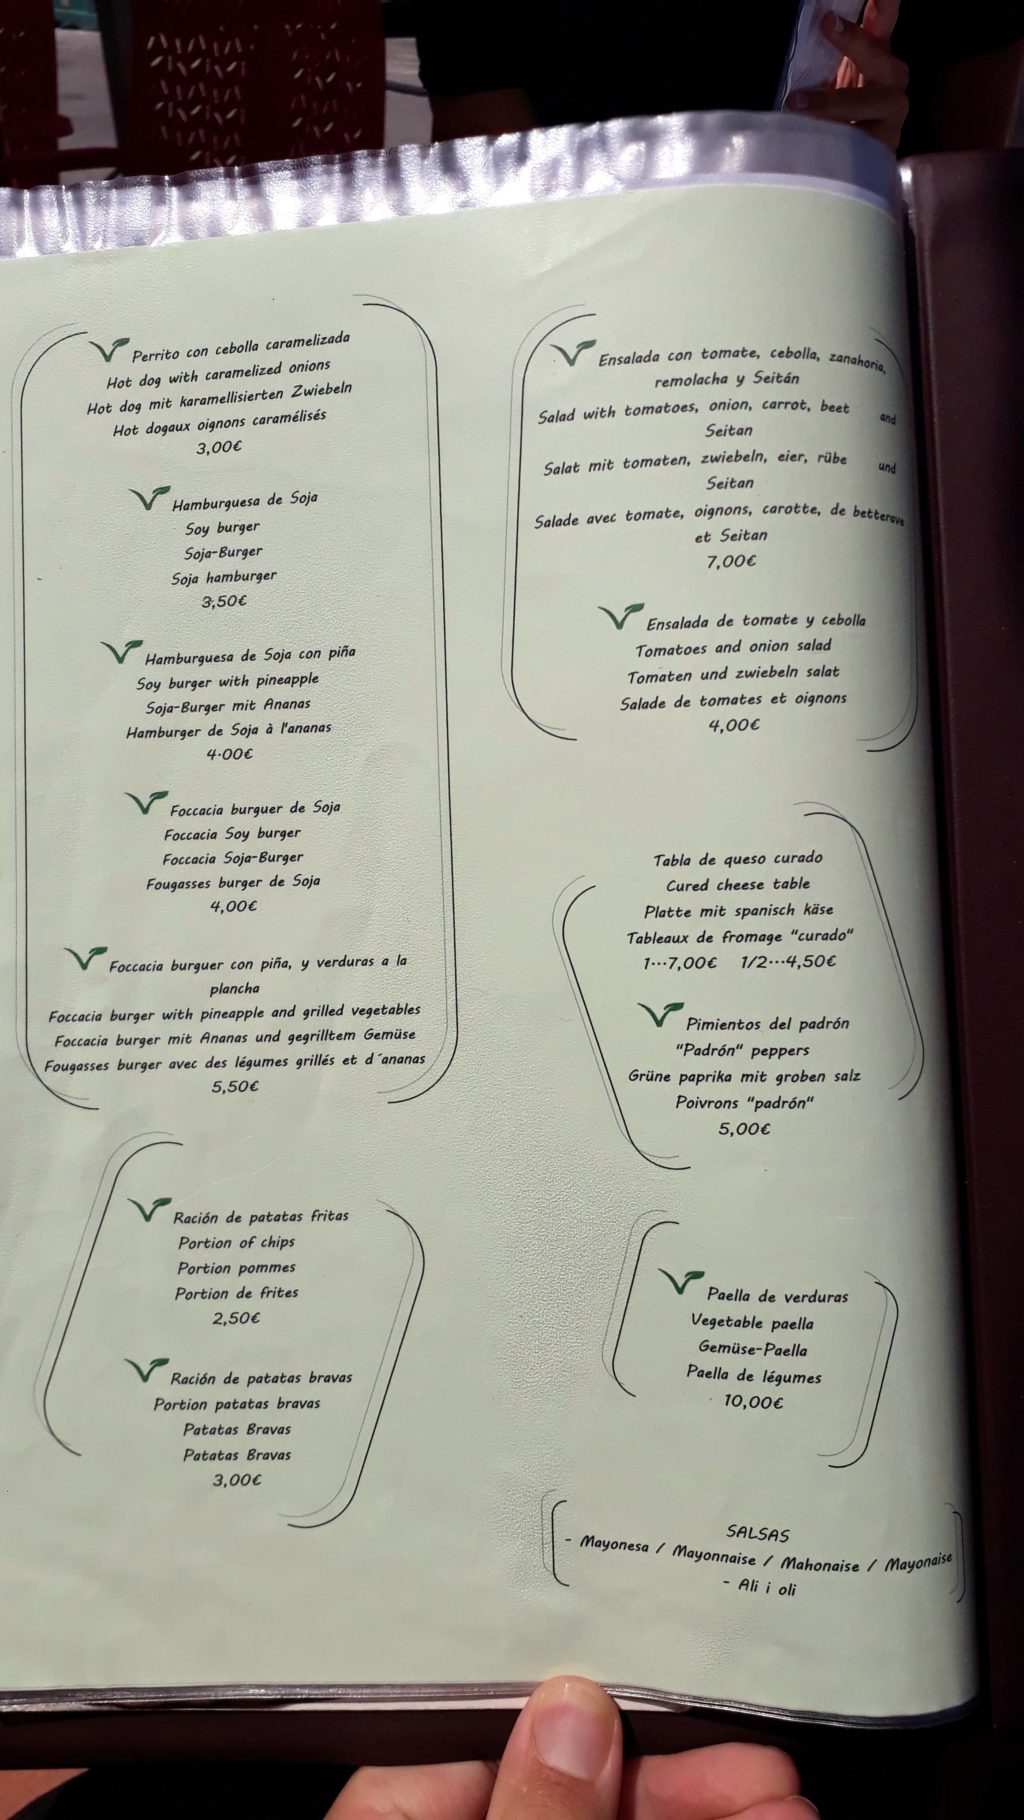 Perrito con cebolla caramelizada
Hot dog with caramelized onions
Hot dog mit karamellisierten Zwiebeln
Hot dogaux oignons caramélisés
3,00€
Hamburguesa de Soja
Soy burger
Soja-Burger
Soja hamburger
3,50€
Hamburguesa de Soja con piña
Soy burger with pineapple
Soja-Burger mit Ananas
Hamburger de Soja à l'ananas
4·00€
Foccacia burguer de Soja
Foccacia Soy burger
Foccacia Soja-Burger
Fougasses burger de Soja
4,00€
Foccacia burguer con piña, y verduras a la
plancha
Foccacia burger with pineapple and grilled vegetables
Foccacia burger mit Ananas und gegrilltem Gemüse
Fougasses burger avec des légumes grillés et d´ananas
5,50€
Ración de patatas fritas
Portion of chips
Portion pommes
Portion de frites
2,50€
Ración de patatas bravas
Portion patatas bravas
Patatas Bravas
Patatas Bravas
3,00€
Ensalada con tomate, cebolla, zanahoria,
remolacha y Seitán
Salad with tomatoes, onion, carrot, beet and
Seitan
Salat mit tomaten, zwiebeln, eier, rübe und
Seitan
Salade avec tomate, oignons, carotte, de betterave
et Seitan
7,00€
Ensalada de tomate y cebolla
Tomatoes and onion salad
Tomaten und zwiebeln salat
Salade de tomates et oignons
4,00€
Tabla de queso curado
Cured cheese table
Platte mit spanisch käse
Tableaux de fromage "curado"
1···7,00€ 1/2···4,50€
Pimientos del padrón
"Padrón" peppers
Grüne paprika mit groben salz
Poivrons "padrón"
5,00€
Paella de verduras
Vegetable paella
Gemüse-Paella
Paella de légumes
10,00€
SALSAS
- Mayonesa / Mayonnaise / Mahonaise / Mayonaise
- Ali i oli